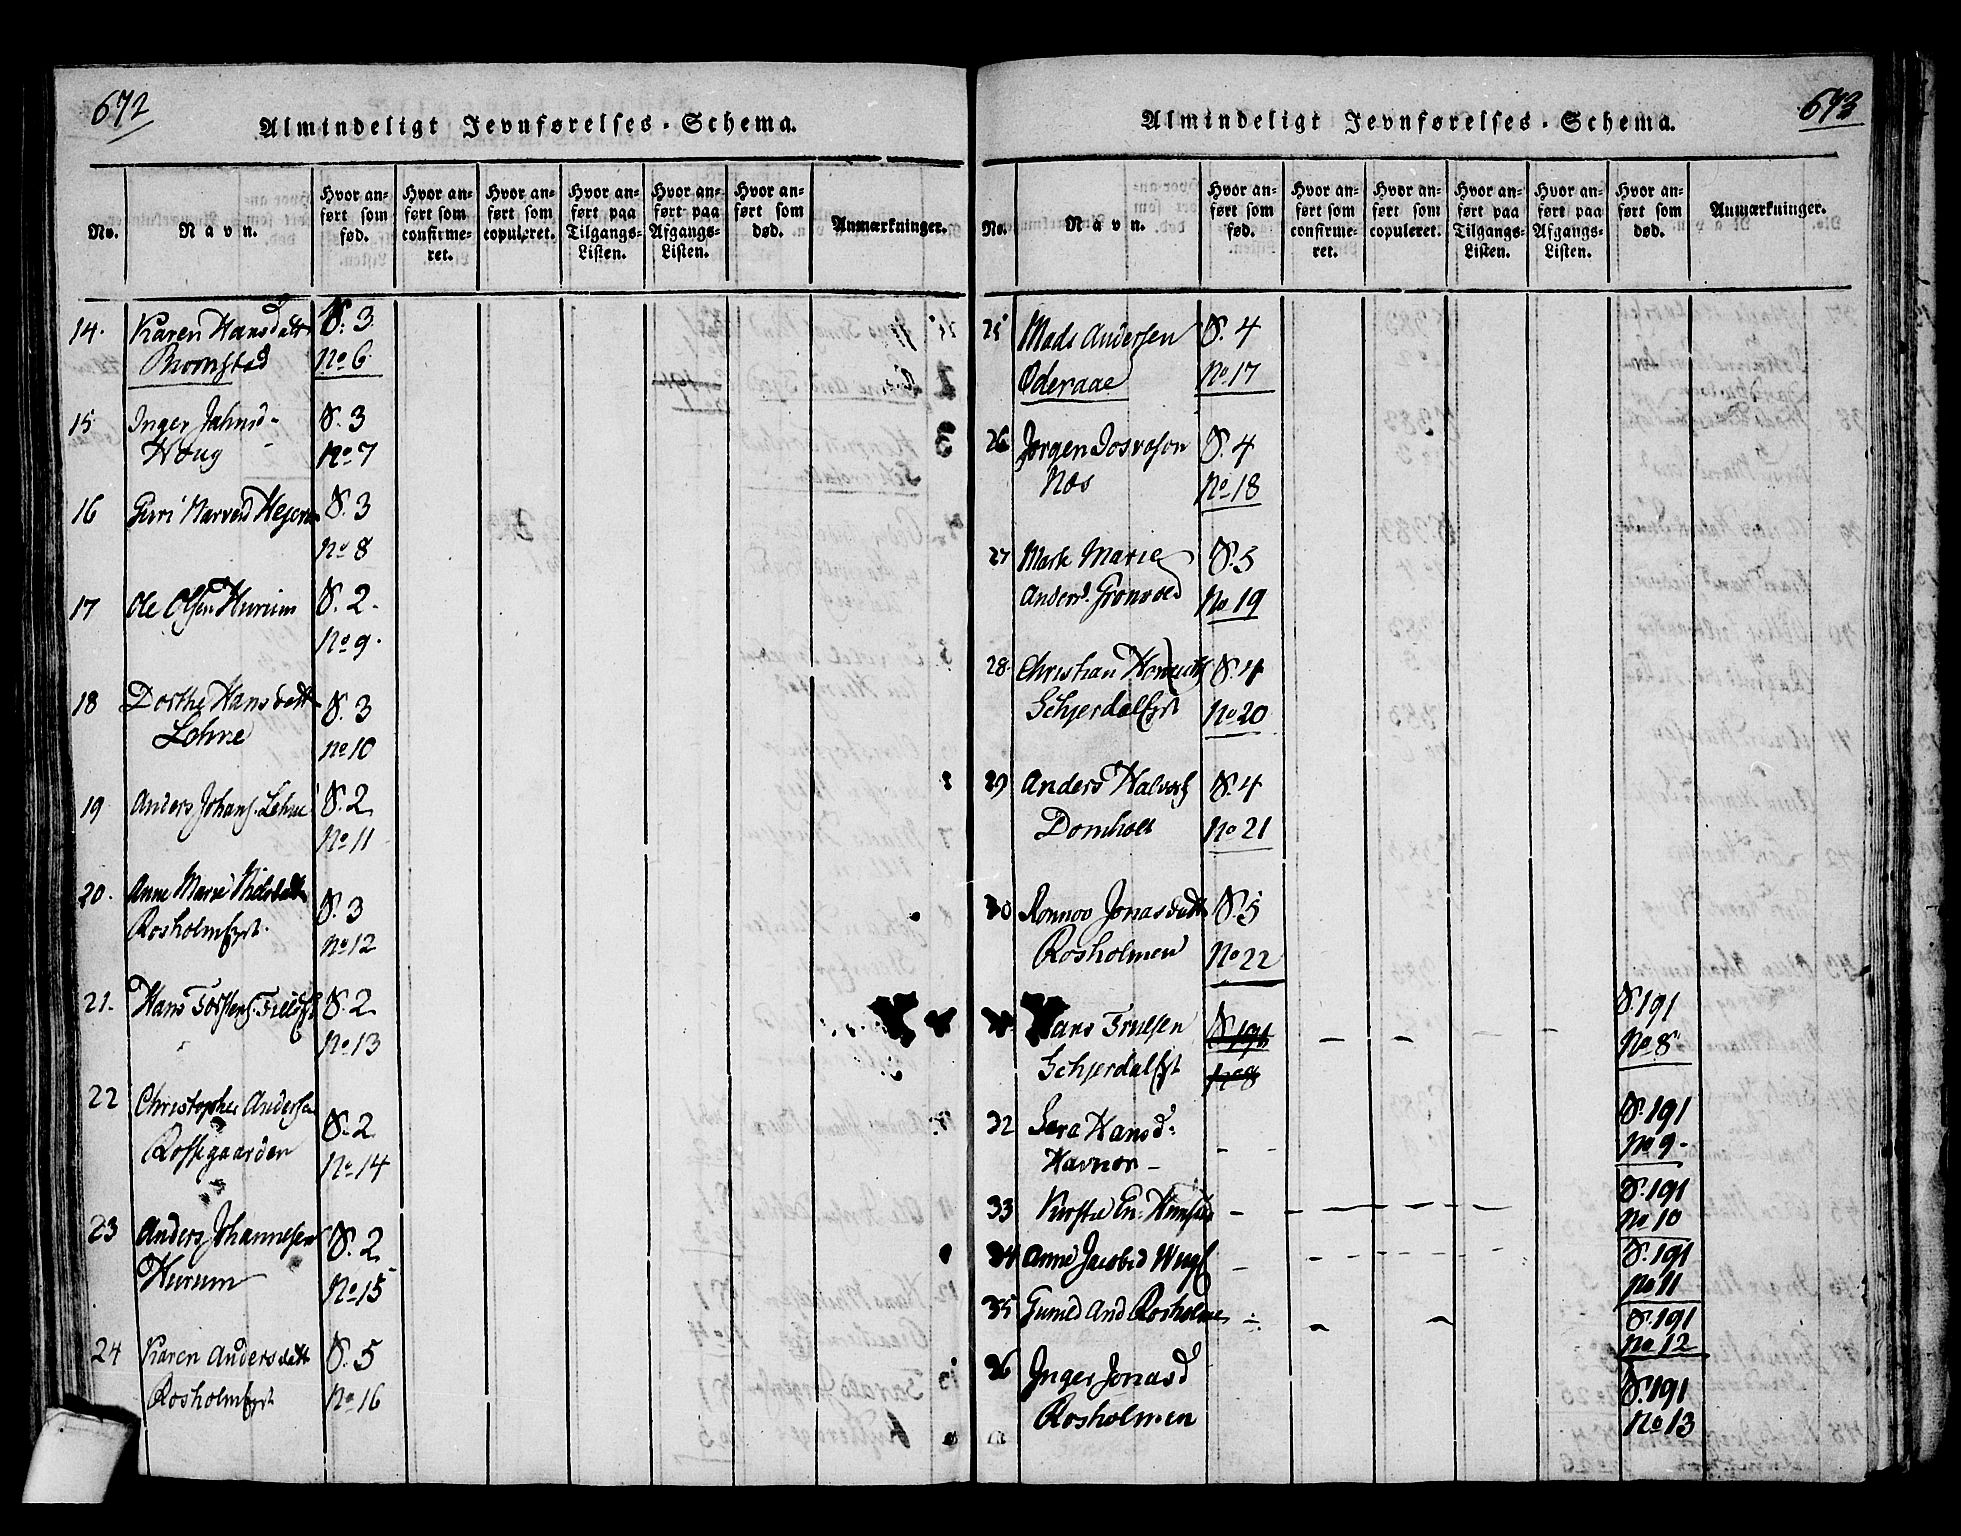 672
Almindeligt Jevnførelses-Schema.
No.
Navn.
Hvor anført som fød.
Hvor anført som confirmeret.
Hvor anført som copuleret.
Hvor anført paa Tilgangs-Listen.
Hvor anført paa Afgangs-Listen.
Hvor anført som død.
Anmærkninger.
14. Karen Hansdatt S. 3
Bromstad No 6.
15 Inger Jahnsd- S. 3
Houg No 7
16 Guri Narvesd S. 3
No 8
17 Ole Olsen Hurum S. 2.
No 9.
18 Dorthe Hansdatt S. 3
Lohne No 10
19 Anders Johans. Lehne S. 2
No 11
20. Anne Marie Nielsdatt S. 3
Rosholm No 12
21. Hans S. 2
No 13
22 Christopher Andersen S. 2
Rossegaarden No 14
23 Anders Johannesen S. 2
Hurum No 15
24 Karen Andersdatt S. 5
Rosholm No 16
673
Almindeligt Jevnførelses-Schema.
No.
Navn.
Hvor anført som fød.
Hvor anført som confirmeret.
Hvor anført som copuleret.
Hvor anført paa Tilgangs-Listen.
Hvor anført paa Afgangs-Listen.
Hvor anført som død.
Anmærkninger.
25 Mads Andersen S. 4
Oderaae No 17
26 Jørgen S. 4
Næs No 18
27 Marie S. 5
Andersd. Grønvold No 19
28. Christian S. 4
Schjerdal No 20
29 Anders Halvors S. 4
Domholt No 21
30 Ronnov Jonasdatt S. 5
Rosholmen No 22
Hans Truesen S. 191 S. 191
Schjerdal No 8 No 8
32 Sara Hansd: S. 191
Havnor - No 9-
33 Kirstie S. 191
No 10
34 Anne Jacobsd S. 191
No 11
35 Gunild And Rosholme S. 191
No 12
36 Inger Jonasd S. 191
Rosholmen No 13